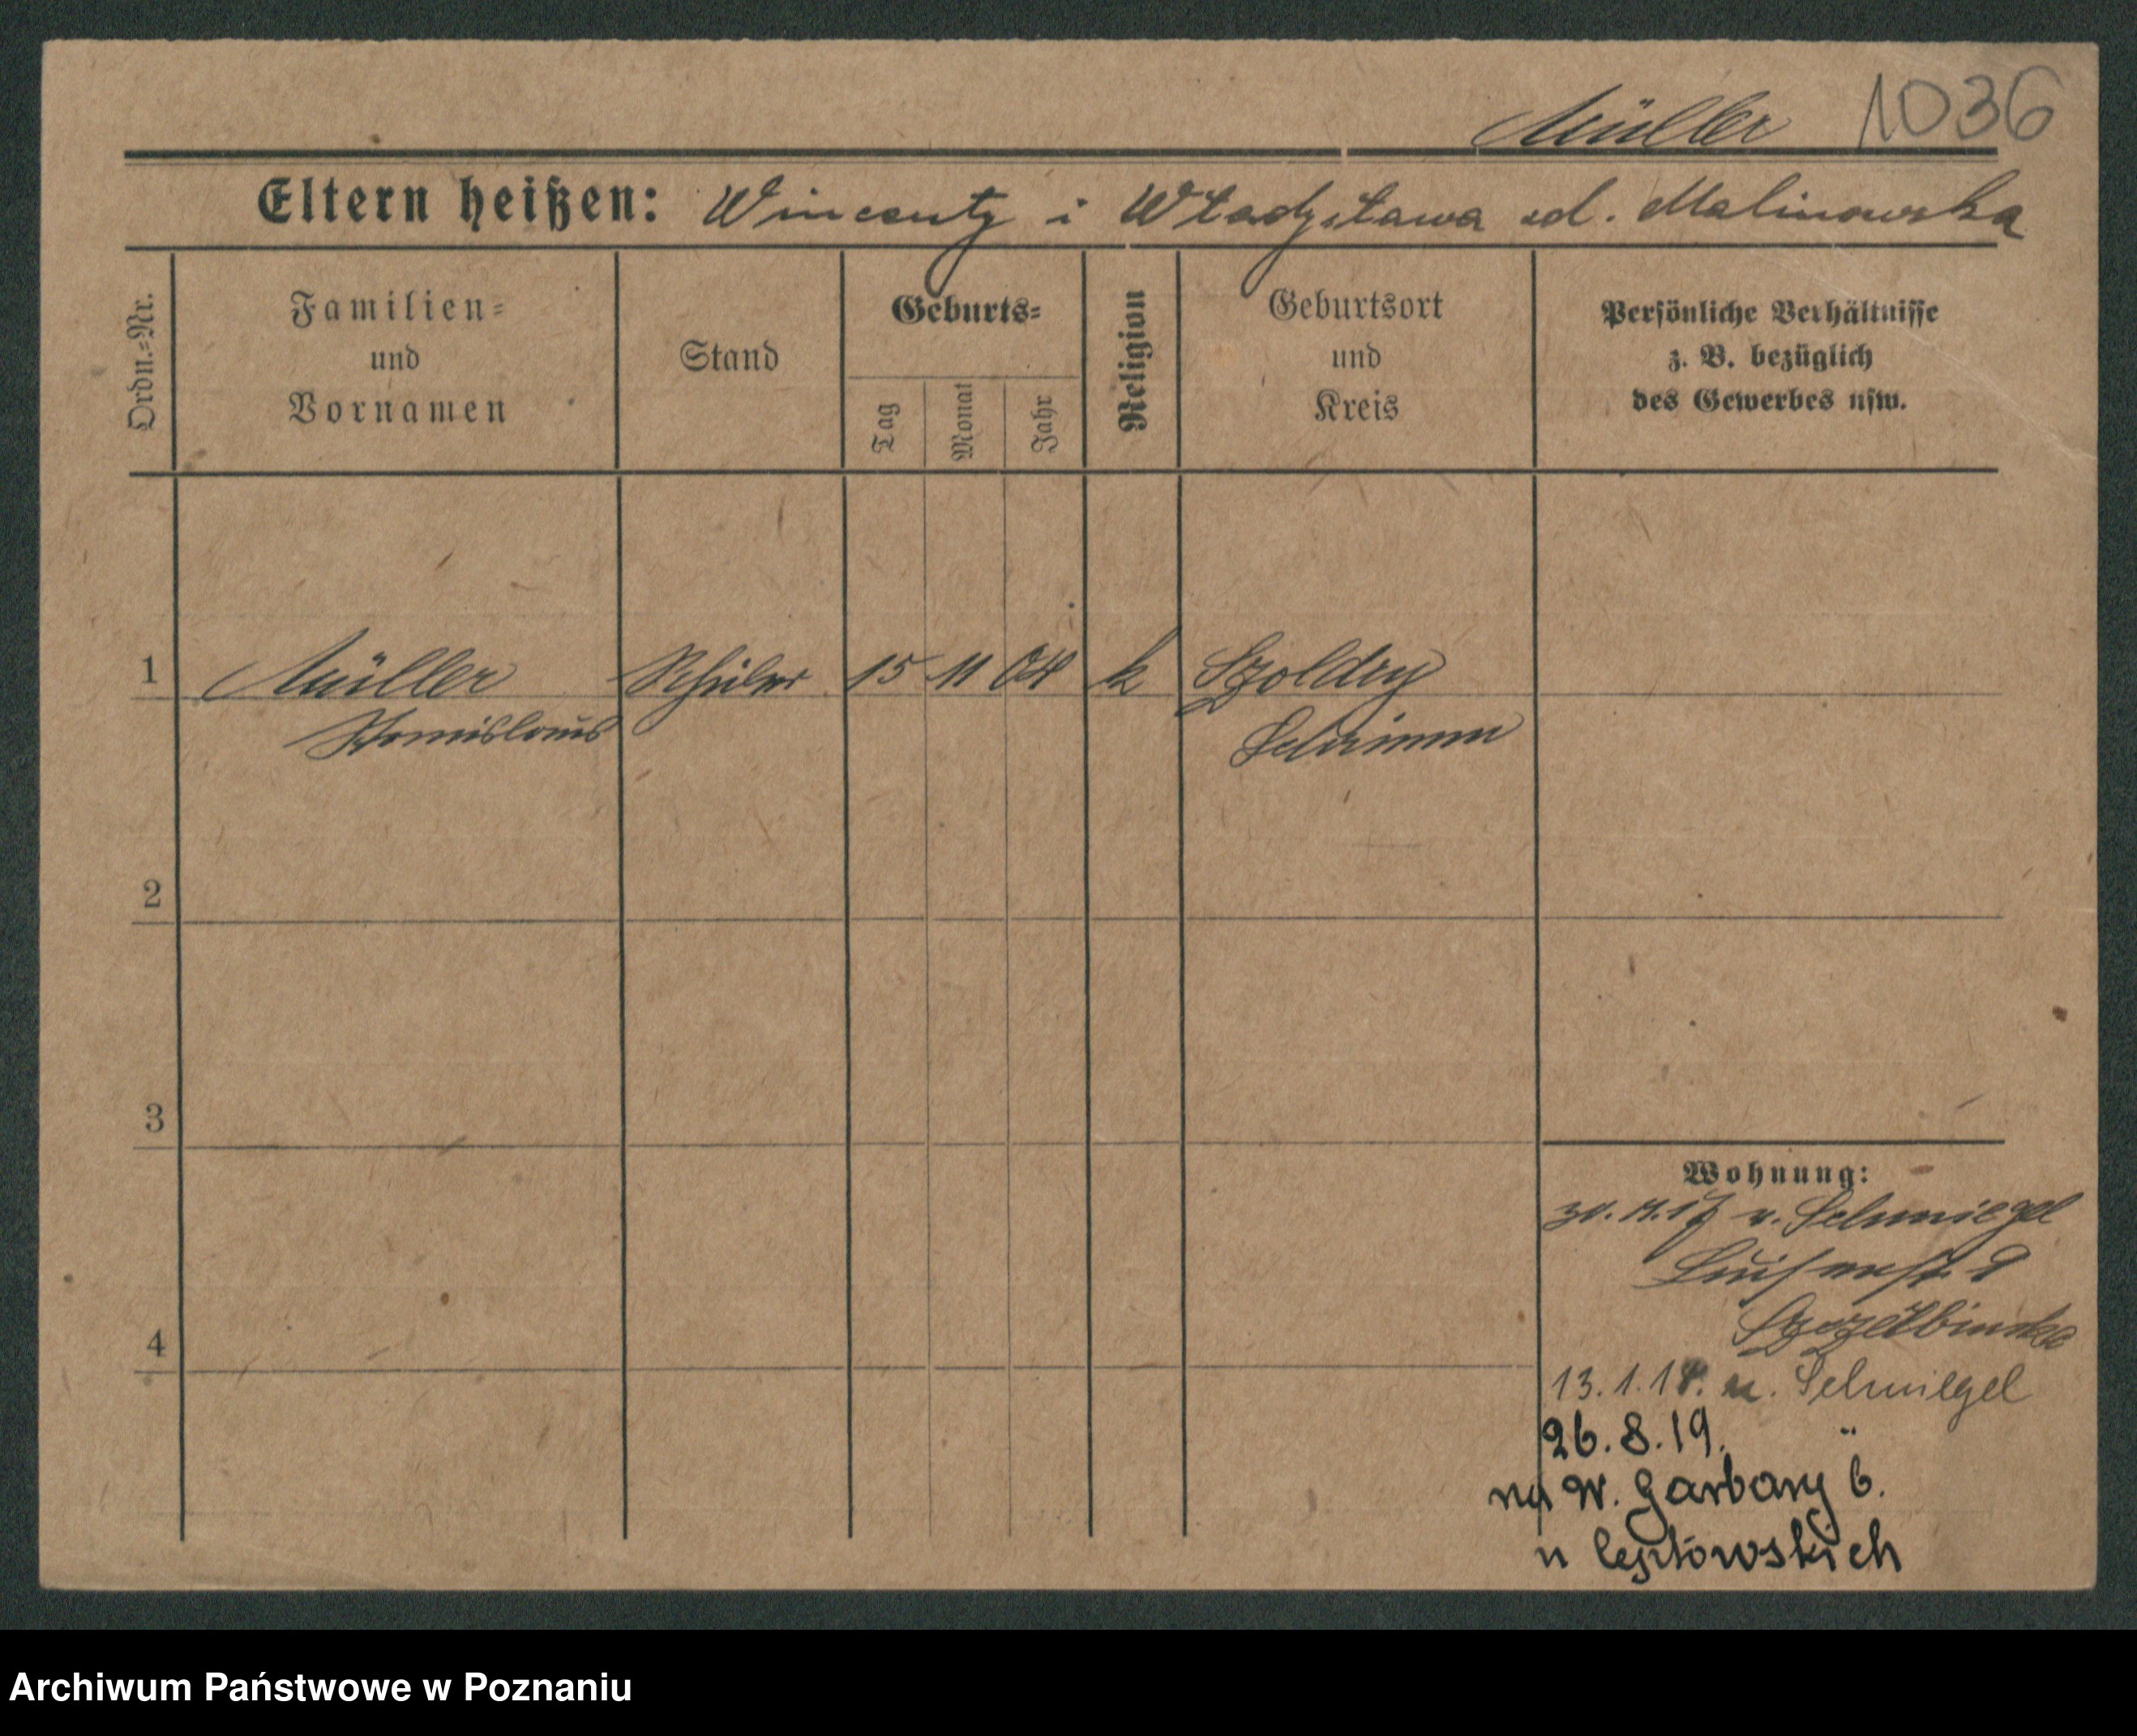 Müller 1036
Eltern heißen: Wincenty i Władysława zd. Malinowska
Ordn.=Nr.
Familien=
und
Vornamen
Stand
Geburts=
Tag
Monat
Jahr
Religion
Geburtsort
und
Kreis
Persönliche Verhältnisse
z. B. bezüglich
des Gewerbes usw.
1 Müller Schüler 15 11 04 k Szoldry
Stanislaus Schrimm
2
3
4
Wohnung:
v. Schmiegel
Luisenstr. 9
13.1.18. n. Schmiegel
26.8.19. "
na W. Garbary 6.
u
Archiwum Państwowe w Poznaniu